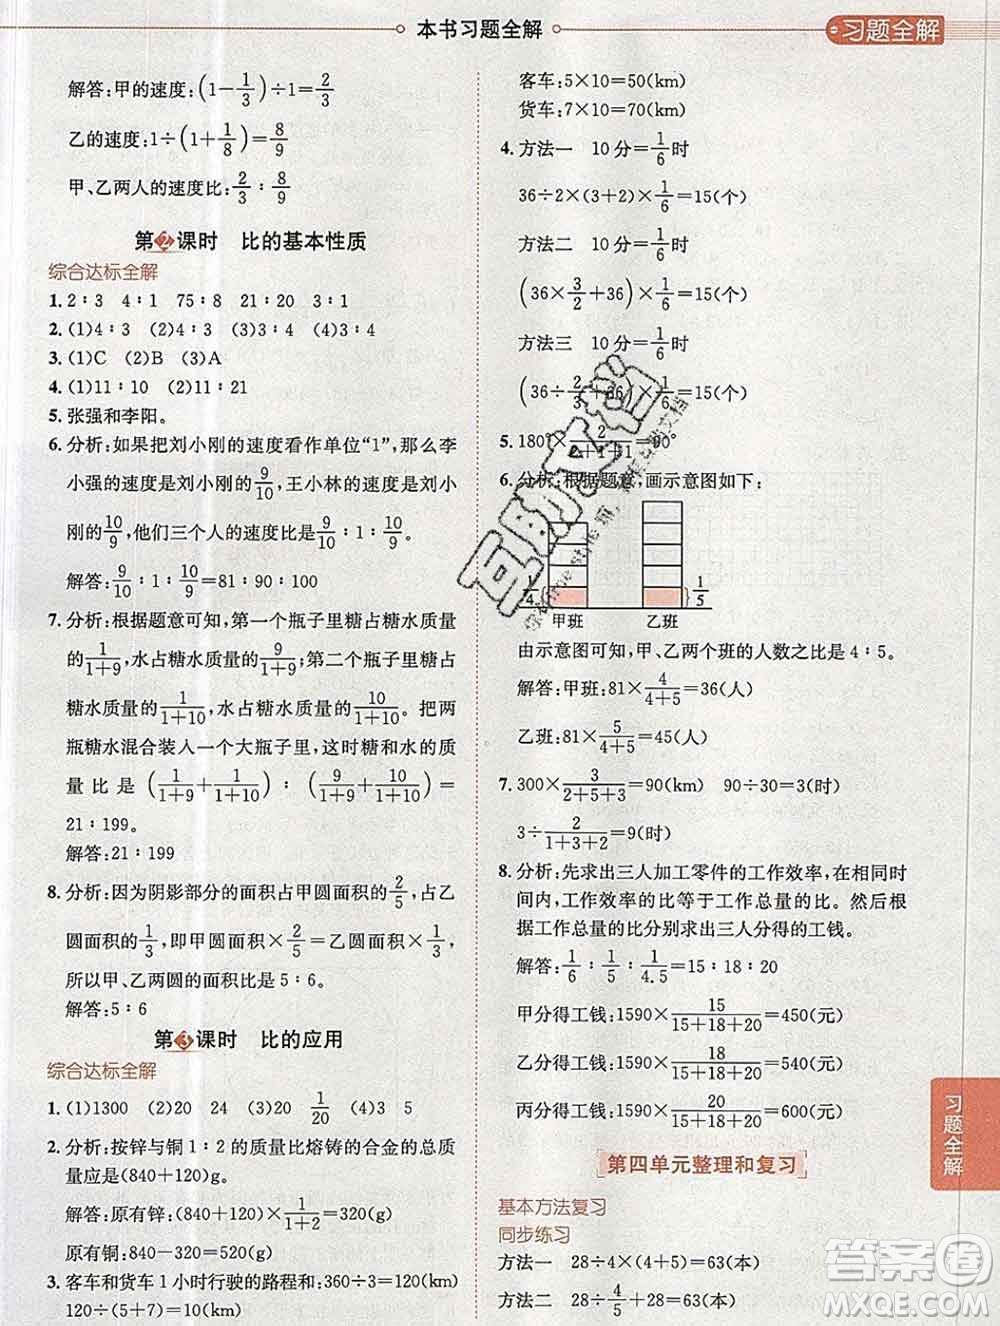 本书习题全解
习题全解
解答:甲的速度:(1-1/3)÷1=2/3
乙的速度:1÷(1+1/8)=8/9
甲、乙两人的速度比:2/3∶8/9
第2课时 比的基本性质
综合达标全解
1. 2∶3 4∶1 75∶8 21∶20 3∶1
2. (1)4∶3 (2)4∶3 (3)3∶4 (4)3∶4
3. (1)C (2)B (3)A
4. (1)11∶10 (2)11∶21
5. 张强和李阳。
6. 分析:如果把刘小刚的速度看作单位“1”,那么李
小强的速度是刘小刚的9/10,王小林的速度是刘小
刚的10/9,他们三个人的速度比是9/10∶1∶10/9。
解答:9/10∶1∶10/9=81∶90∶100
7. 分析:根据题意可知,第一个瓶子里糖占糖水质量
的1/(1+9),水占糖水质量的9/(1+9);第二个瓶子里糖占
糖水质量的1/(1+10),水占糖水质量的10/(1+10)。把两
瓶糖水混合装入一个大瓶子里,这时糖和水的质
量比是(1/(1+9)+1/(1+10))∶(9/(1+9)+10/(1+10))=
21∶199。
解答:21∶199
8. 分析:因为阴影部分的面积占甲圆面积的2/5,占乙
圆面积的1/3,即甲圆面积×2/5=乙圆面积×1/3,
所以甲、乙两圆的面积比是5∶6。
解答:5∶6
第3课时 比的应用
综合达标全解
1. (1)1300 (2)20 24 (3)20 1/20 (4)3 5
2. 分析:按锌与铜1∶2的质量比熔铸的合金的总质
量应是(840+120)g。
解答:原有锌:(840+120)×1/(1+2)=320(g)
原有铜:840-320=520(g)
3. 客车和货车1小时行驶的路程和:360÷3=120(km)
120÷(5+7)=10(km)
客车:5×10=50(km)
货车:7×10=70(km)
4. 方法一 10分=1/6时
36÷2×(3+2)×1/6=15(个)
方法二 10分=1/6时
(36×3/2+36)×1/6=15(个)
方法三 10分=1/6时
(36÷2/3+36)×1/6=15(个)
5. 180°×2/(2+1+1)=90°。
6. 分析:根据题意,画示意图如下:
1/4
1/5
甲班 乙班
由示意图可知,甲、乙两个班的人数之比是4∶5。
解答:甲班:81×4/(4+5)=36(人)
乙班:81×5/(4+5)=45(人)
7. 300×3/(2+5+3)=90(km) 90÷30=3(时)
3÷2/(1+3+2)=9(时)
8. 分析:先求出三人加工零件的工作效率,在相同时
间内,工作效率的比等于工作总量的比。然后根
据工作总量的比分别求出三人分得的工钱。
解答:1/6∶1/5∶1/4.5=15∶18∶20
甲分得工钱:1590×15/(15+18+20)=450(元)
乙分得工钱:1590×18/(15+18+20)=540(元)
丙分得工钱:1590×20/(15+18+20)=600(元)
第四单元整理和复习
基本方法复习
同步练习
方法一 28÷4×(4+5)=63(本)
方法二 28÷4/5+28=63(本)
习题全解
互助文档
答案圈
MXQE.COM